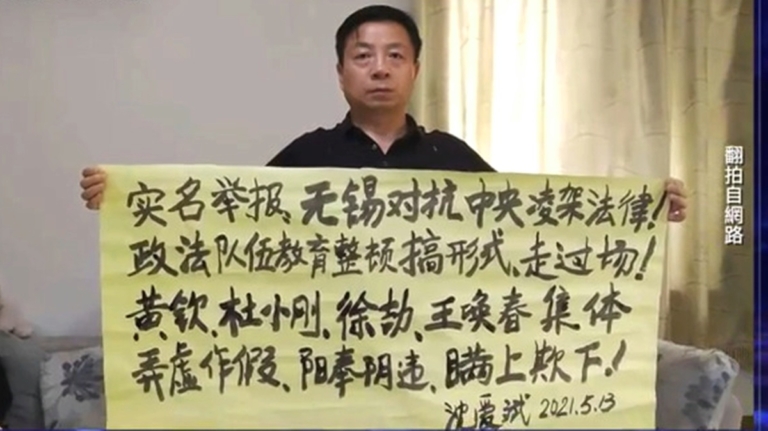 实名举报、无锡对抗中央凌架法律!
政法队伍教育整顿搞形式、走过场!
黄钦、杜小刚、徐劼、王唤春集体
弄虚作假、阳奉阴违、瞒上欺下!
沈爱斌 2021.5.13
翻拍自網路